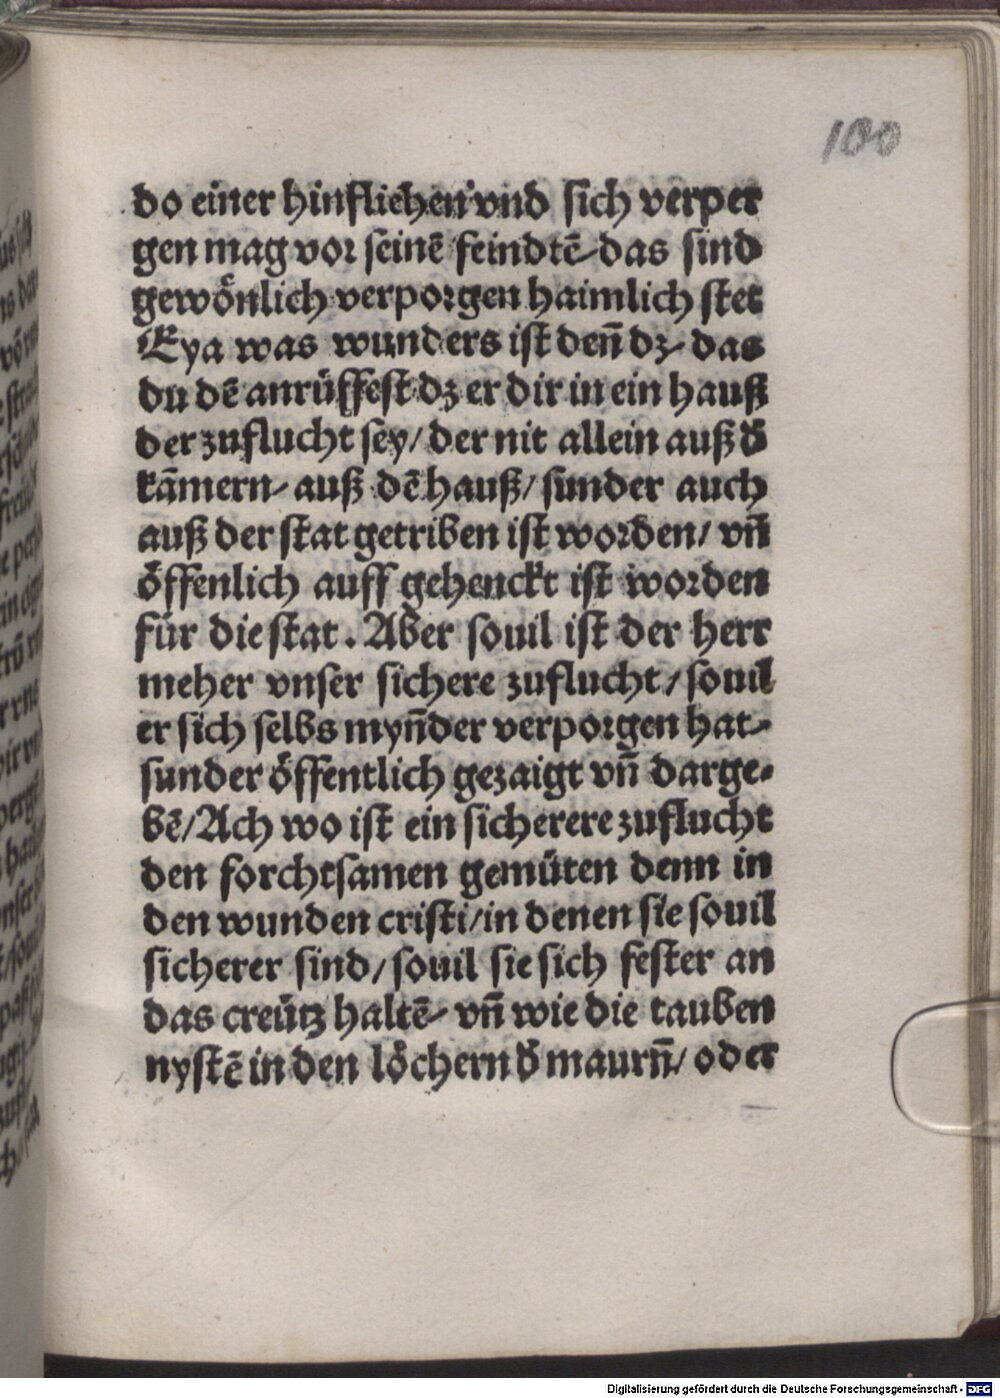 100
do einer hinfliehen vnd sich verper
gen mag vor seinē feindtē das sind
gewönlich verporgen haimlich stet
Eya was wunders ist deñ dz das
du dē anrüffest dz er dir in ein hauß
der zuflucht sey/ der nit allein auß d̕
kām̄ern auß dē hauß/ sunder auch
auß der stat getriben ist worden/ vñ
öffenlich auff gehenckt ist worden
für die stat. Aber souil ist der herr
meher vnser sichere zuflucht/ souil
er sich selbs myñder verporgen hat
sunder öffentlich gezaigt vñ darge⸗
bē/ Ach wo ist ein sicherere zuflucht
den forchtsamen gemüten denn in
den wunden cristi/ in denen sie souil
sicherer sind/ souil sie sich fester an
das creütz haltē vñ wie die tauben
nystē in den löchern d̕ maurñ/ oder
Digitalisierung gefördert durch die Deutsche Forschungsgemeinschaft - DFG